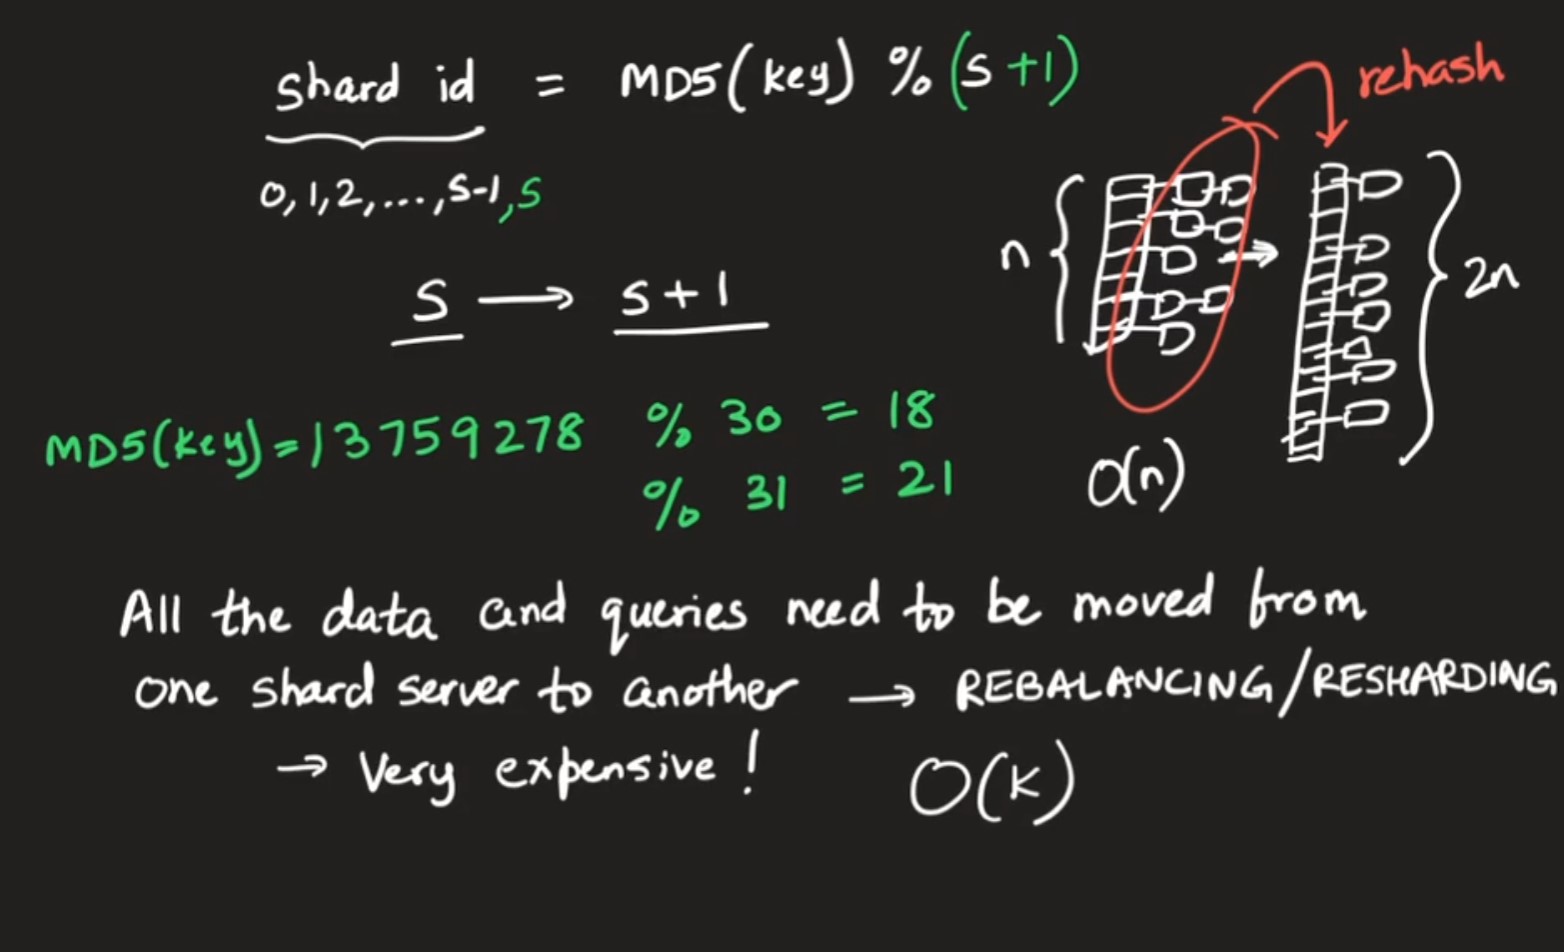 shard id = MD5(key) % (S+1)
rehash
0,1,2,...,S-1,S
n
2n
S → S+1
MD5(key)=13759278 % 30 = 18
% 31 = 21
O(n)
All the data and queries need to be moved from
one shard server to another → REBALANCING/RESHARDING
→ Very expensive!
O(K)